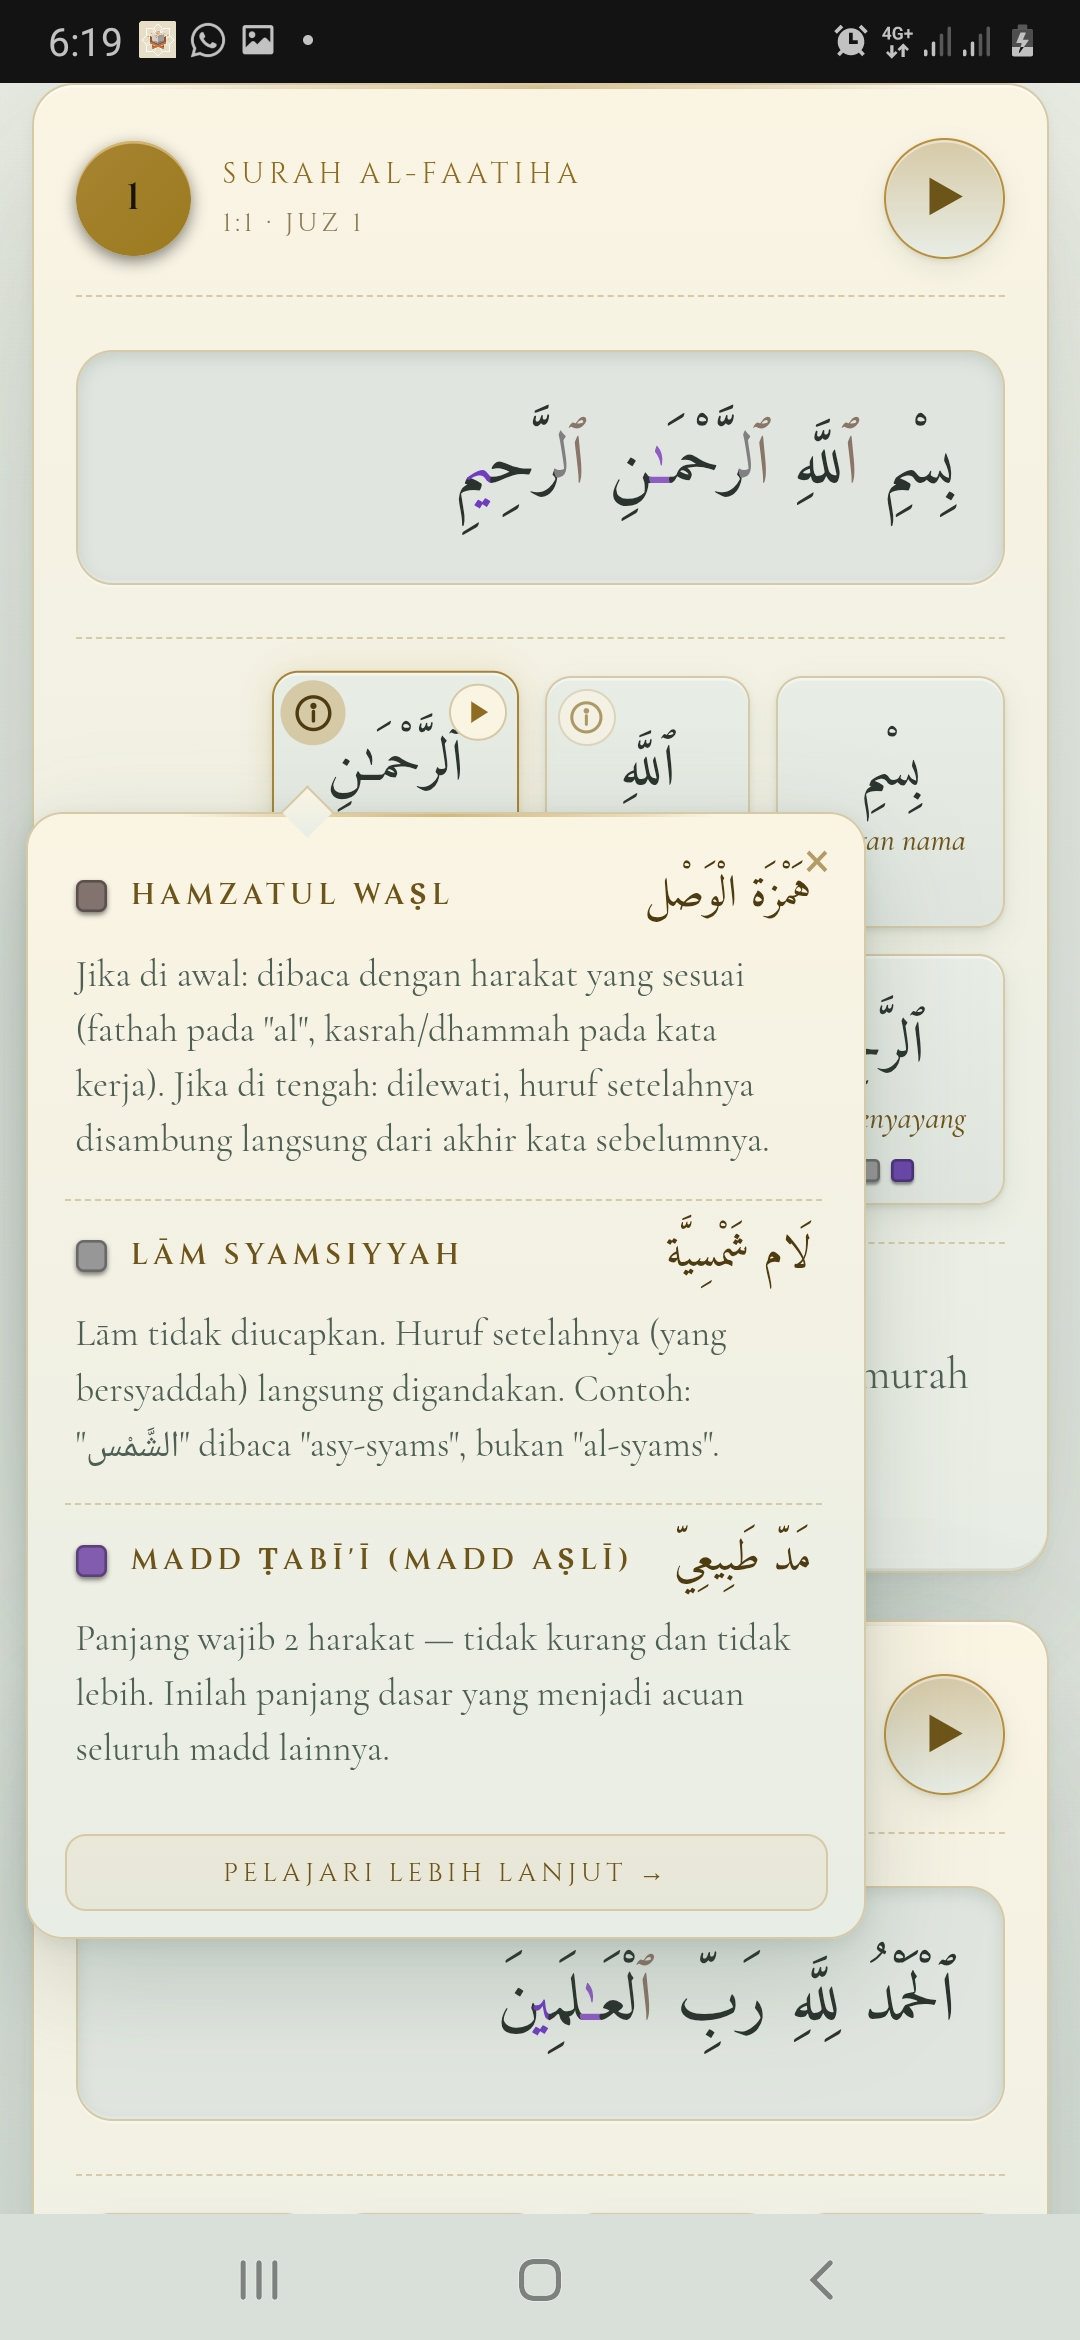 6:19
4G+
1
SURAH AL-FAATIHA
1:1 · JUZ 1
بِسْمِ ٱللَّهِ ٱلرَّحْمَـٰنِ ٱلرَّحِيمِ
بِسْمِ
ٱللَّهِ
ٱلرَّحْمَـٰنِ
nama
HAMZATUL WAṢL
هَمْزَة الْوَصْل
Jika di awal: dibaca dengan harakat yang sesuai
(fathah pada "al", kasrah/dhammah pada kata
kerja). Jika di tengah: dilewati, huruf setelahnya
disambung langsung dari akhir kata sebelumnya.
LĀM SYAMSIYYAH
لَام شَمْسِيَّة
Lām tidak diucapkan. Huruf setelahnya (yang
bersyaddah) langsung digandakan. Contoh:
"الشَّمْس" dibaca "asy-syams", bukan "al-syams".
MADD ṬABĪ'Ī (MADD AṢLĪ)
مَدّ طَبِيعِيّ
Panjang wajib 2 harakat — tidak kurang dan tidak
lebih. Inilah panjang dasar yang menjadi acuan
seluruh madd lainnya.
PELAJARI LEBIH LANJUT →
ٱلْحَمْدُ لِلَّهِ رَبِّ ٱلْعَـٰلَمِينَ